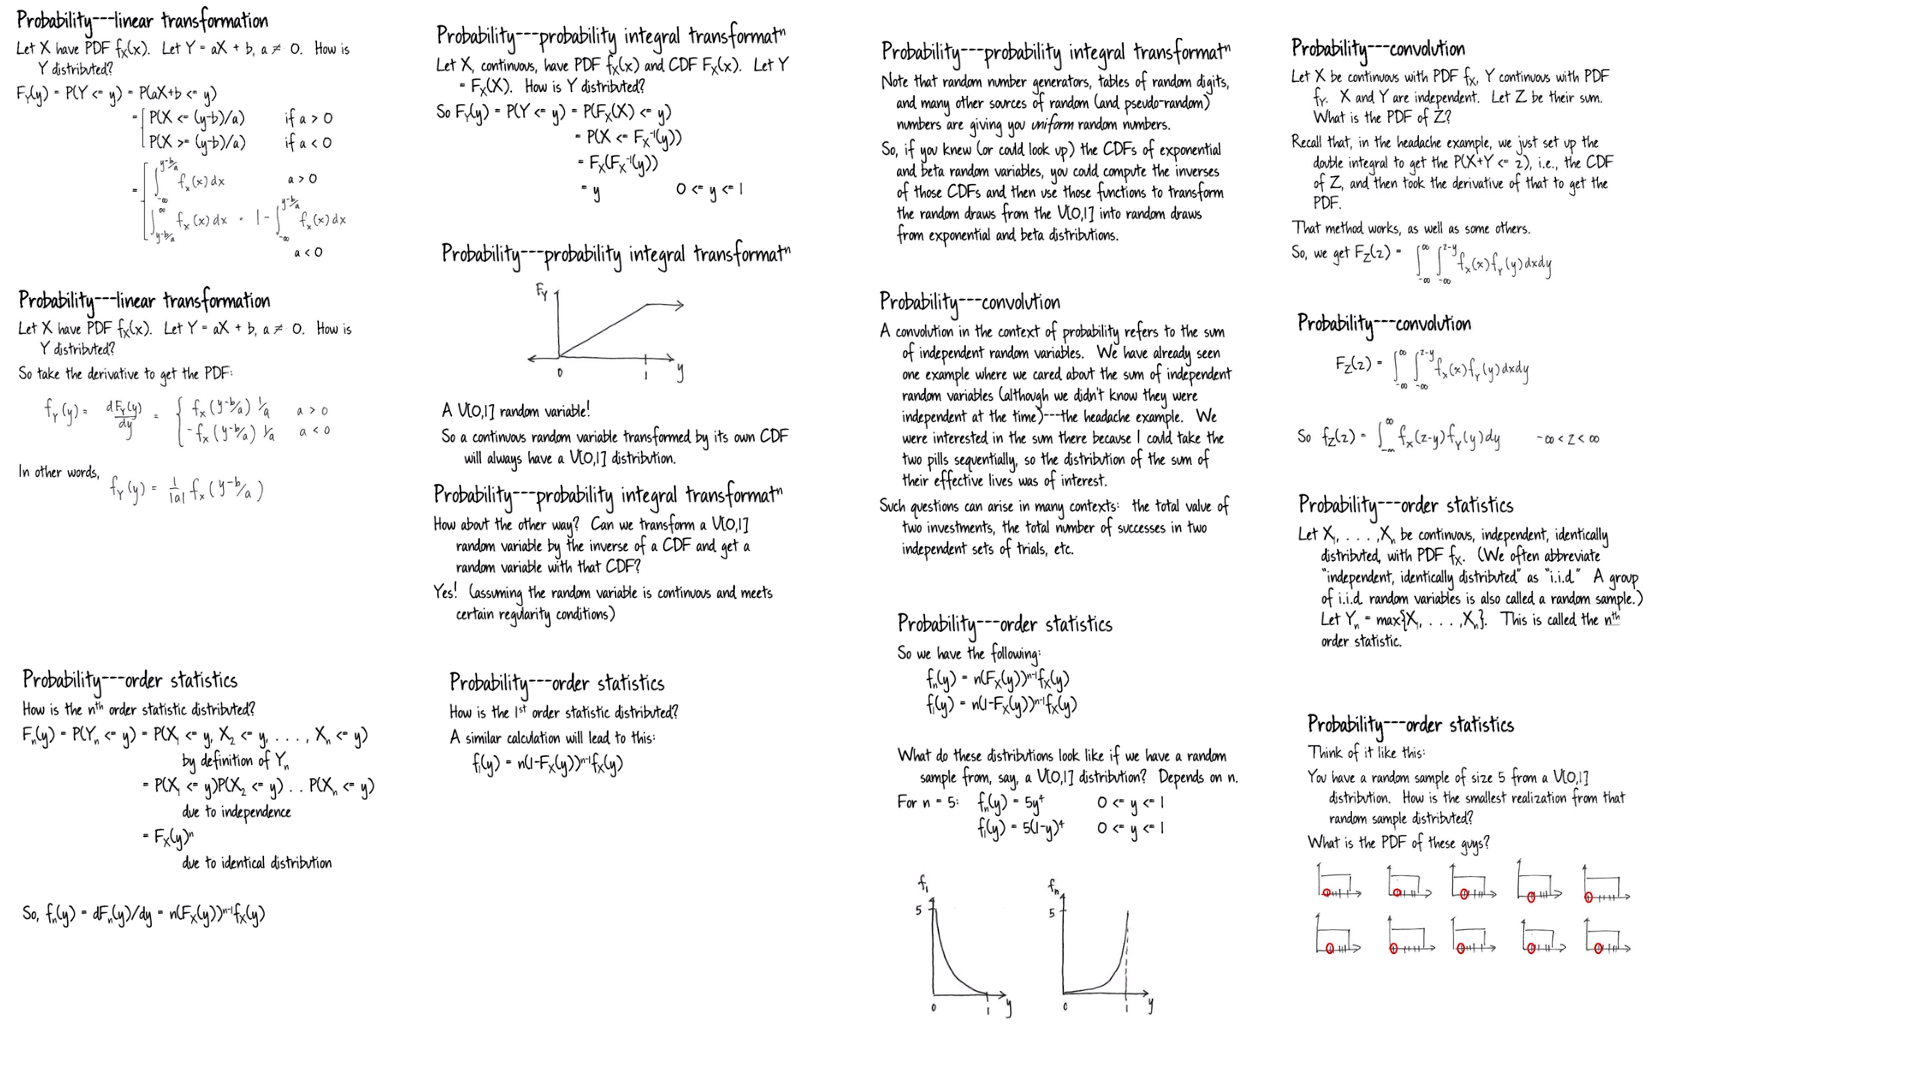 Probability---linear transformation
Let X have PDF fX(x). Let Y = aX + b, a ≠ 0. How is
Y distributed?
FY(y) = P(Y <= y) = P(aX+b <= y)
= { P(X <= (y-b)/a) if a > 0
P(X >= (y-b)/a) if a < 0
= { ∫_{-∞}^{y-b/a} fx(x)dx a > 0
∫_{y-b/a}^{∞} fx(x)dx = 1 - ∫_{-∞}^{y-b/a} fx(x)dx
a < 0
Probability---linear transformation
Let X have PDF fX(x). Let Y = aX + b, a ≠ 0. How is
Y distributed?
So take the derivative to get the PDF:
fY(y) = dFY(y)/dy = { fx(y-b/a) 1/a a > 0
-fx(y-b/a) 1/a a < 0
In other words, fY(y) = 1/|a| fx(y-b/a)
Probability---order statistics
How is the nth order statistic distributed?
Fn(y) = P(Yn <= y) = P(X1 <= y, X2 <= y, . . . , Xn <= y)
by definition of Yn
= P(X1 <= y)P(X2 <= y) . . P(Xn <= y)
due to independence
= FX(y)^n
due to identical distribution
So, fn(y) = dFn(y)/dy = n(FX(y))^n-1 fX(y)
Probability---probability integral transformatn
Let X, continuous, have PDF fX(x) and CDF FX(x). Let Y
= FX(X). How is Y distributed?
So FY(y) = P(Y <= y) = P(FX(X) <= y)
= P(X <= FX^-1(y))
= FX(FX^-1(y))
= y 0 <= y <= 1
Probability---probability integral transformatn
FY
0 1 y
A U[0,1] random variable!
So a continuous random variable transformed by its own CDF
will always have a U[0,1] distribution.
Probability---probability integral transformatn
How about the other way? Can we transform a U[0,1]
random variable by the inverse of a CDF and get a
random variable with that CDF?
Yes! (assuming the random variable is continuous and meets
certain regularity conditions)
Probability---order statistics
How is the 1st order statistic distributed?
A similar calculation will lead to this:
f1(y) = n(1-FX(y))^n-1 fX(y)
Probability---probability integral transformatn
Note that random number generators, tables of random digits,
and many other sources of random (and pseudo-random)
numbers are giving you uniform random numbers.
So, if you knew (or could look up) the CDFs of exponential
and beta random variables, you could compute the inverses
of those CDFs and then use those functions to transform
the random draws from the U[0,1] into random draws
from exponential and beta distributions.
Probability---convolution
A convolution in the context of probability refers to the sum
of independent random variables. We have already seen
one example where we cared about the sum of independent
random variables (although we didn't know they were
independent at the time)---the headache example. We
were interested in the sum there because I could take the
two pills sequentially, so the distribution of the sum of
their effective lives was of interest.
Such questions can arise in many contexts: the total value of
two investments, the total number of successes in two
independent sets of trials, etc.
Probability---order statistics
So we have the following:
fn(y) = n(FX(y))^n-1 fX(y)
f1(y) = n(1-FX(y))^n-1 fX(y)
What do these distributions look like if we have a random
sample from, say, a U[0,1] distribution? Depends on n.
For n = 5: fn(y) = 5y^4 0 <= y <= 1
f1(y) = 5(1-y)^4 0 <= y <= 1
f1 fn
5 5
0 1 y 0 1 y
Probability---convolution
Let X be continuous with PDF fX, Y continuous with PDF
fY. X and Y are independent. Let Z be their sum.
What is the PDF of Z?
Recall that, in the headache example, we just set up the
double integral to get the P(X+Y <= z), i.e., the CDF
of Z, and then took the derivative of that to get the
PDF.
That method works, as well as some others.
So, we get FZ(z) = ∫_{-∞}^{∞} ∫_{-∞}^{z-y} fx(x)fY(y)dxdy
Probability---convolution
FZ(z) = ∫_{-∞}^{∞} ∫_{-∞}^{z-y} fx(x)fY(y)dxdy
So fZ(z) = ∫_{-∞}^{∞} fx(z-y)fY(y)dy -∞ < z < ∞
Probability---order statistics
Let X1, . . . ,Xn be continuous, independent, identically
distributed, with PDF fX. (We often abbreviate
"independent, identically distributed" as "i.i.d." A group
of i.i.d. random variables is also called a random sample.)
Let Yn = max{X1, . . . ,Xn}. This is called the nth
order statistic.
Probability---order statistics
Think of it like this:
You have a random sample of size 5 from a U[0,1]
distribution. How is the smallest realization from that
random sample distributed?
What is the PDF of these guys?